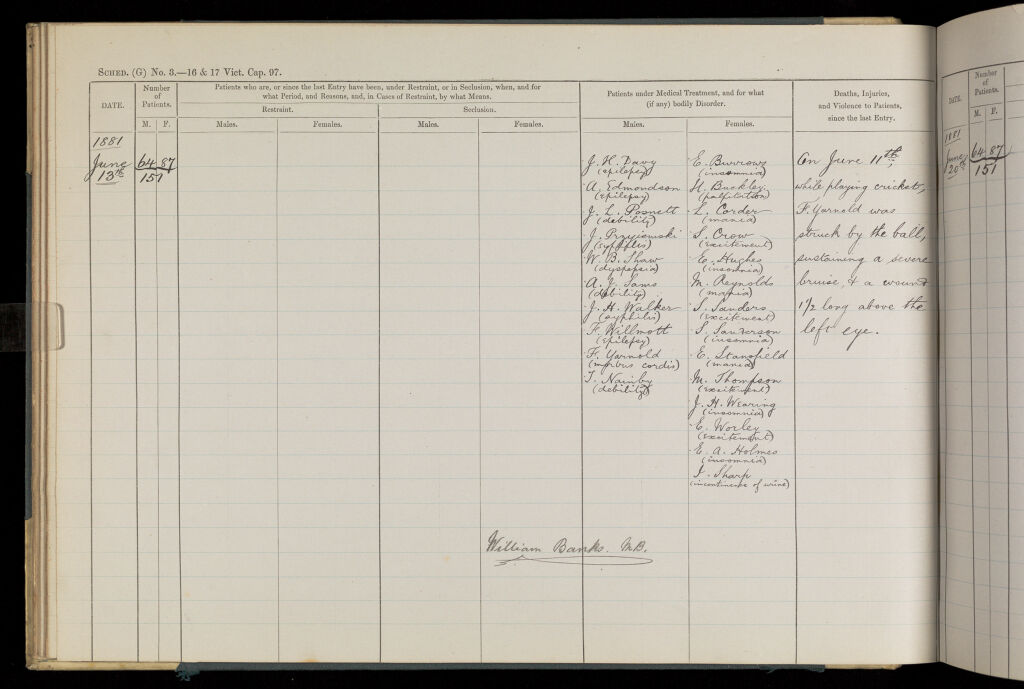 SCHED. (G) No. 3.—16 & 17 Vict. Cap. 97.
DATE.
Number
of
Patients.
M. F.
Patients who are, or since the last Entry have been, under Restraint, or in Seclusion, when, and for
what Period, and Reasons, and, in Cases of Restraint, by what Means.
Restraint.
Seclusion.
Males.
Females.
Males.
Females.
Patients under Medical Treatment, and for what
(if any) bodily Disorder.
Males.
Females.
Deaths, Injuries,
and Violence to Patients,
since the last Entry.
1881
June
13th
64 87
151
J. H. Davy
(epilepsy)
A. Edmondson
(epilepsy)
J. L. Posnett
(debility)
J. Przyiemski
(syphilis)
W. B. Shaw
(dyspepsia)
A. J. Sams
(debility)
J. H. Walker
(syphilis)
F. Willmott
(epilepsy)
F. Yarnold
(morbus cordis)
T. Nainby
(debility)
E. Burrows
(insomnia)
H. Buckley
(palpitation)
L. Corder
(mania)
S. Crow
(excitement)
E. Hughes
(insomnia)
M. Reynolds
(mania)
S. Sanders
(excitement)
S. Sanderson
(insomnia)
E. Stansfield
(mania)
M. Thompson
(excitement)
J. H. Wearing
(insomnia)
E. Worley
(excitement)
E. A. Holmes
(insomnia)
Sharp
(incontinence of urine)
On June 11th,
while playing cricket,
F. Yarnold was
struck by the ball,
sustaining a severe
bruise, & a wound
1½ long above the
left eye.
William Banks. M.B.
DATE.
Number
of
Patients.
M. F.
1881
June
20th
64 87
151